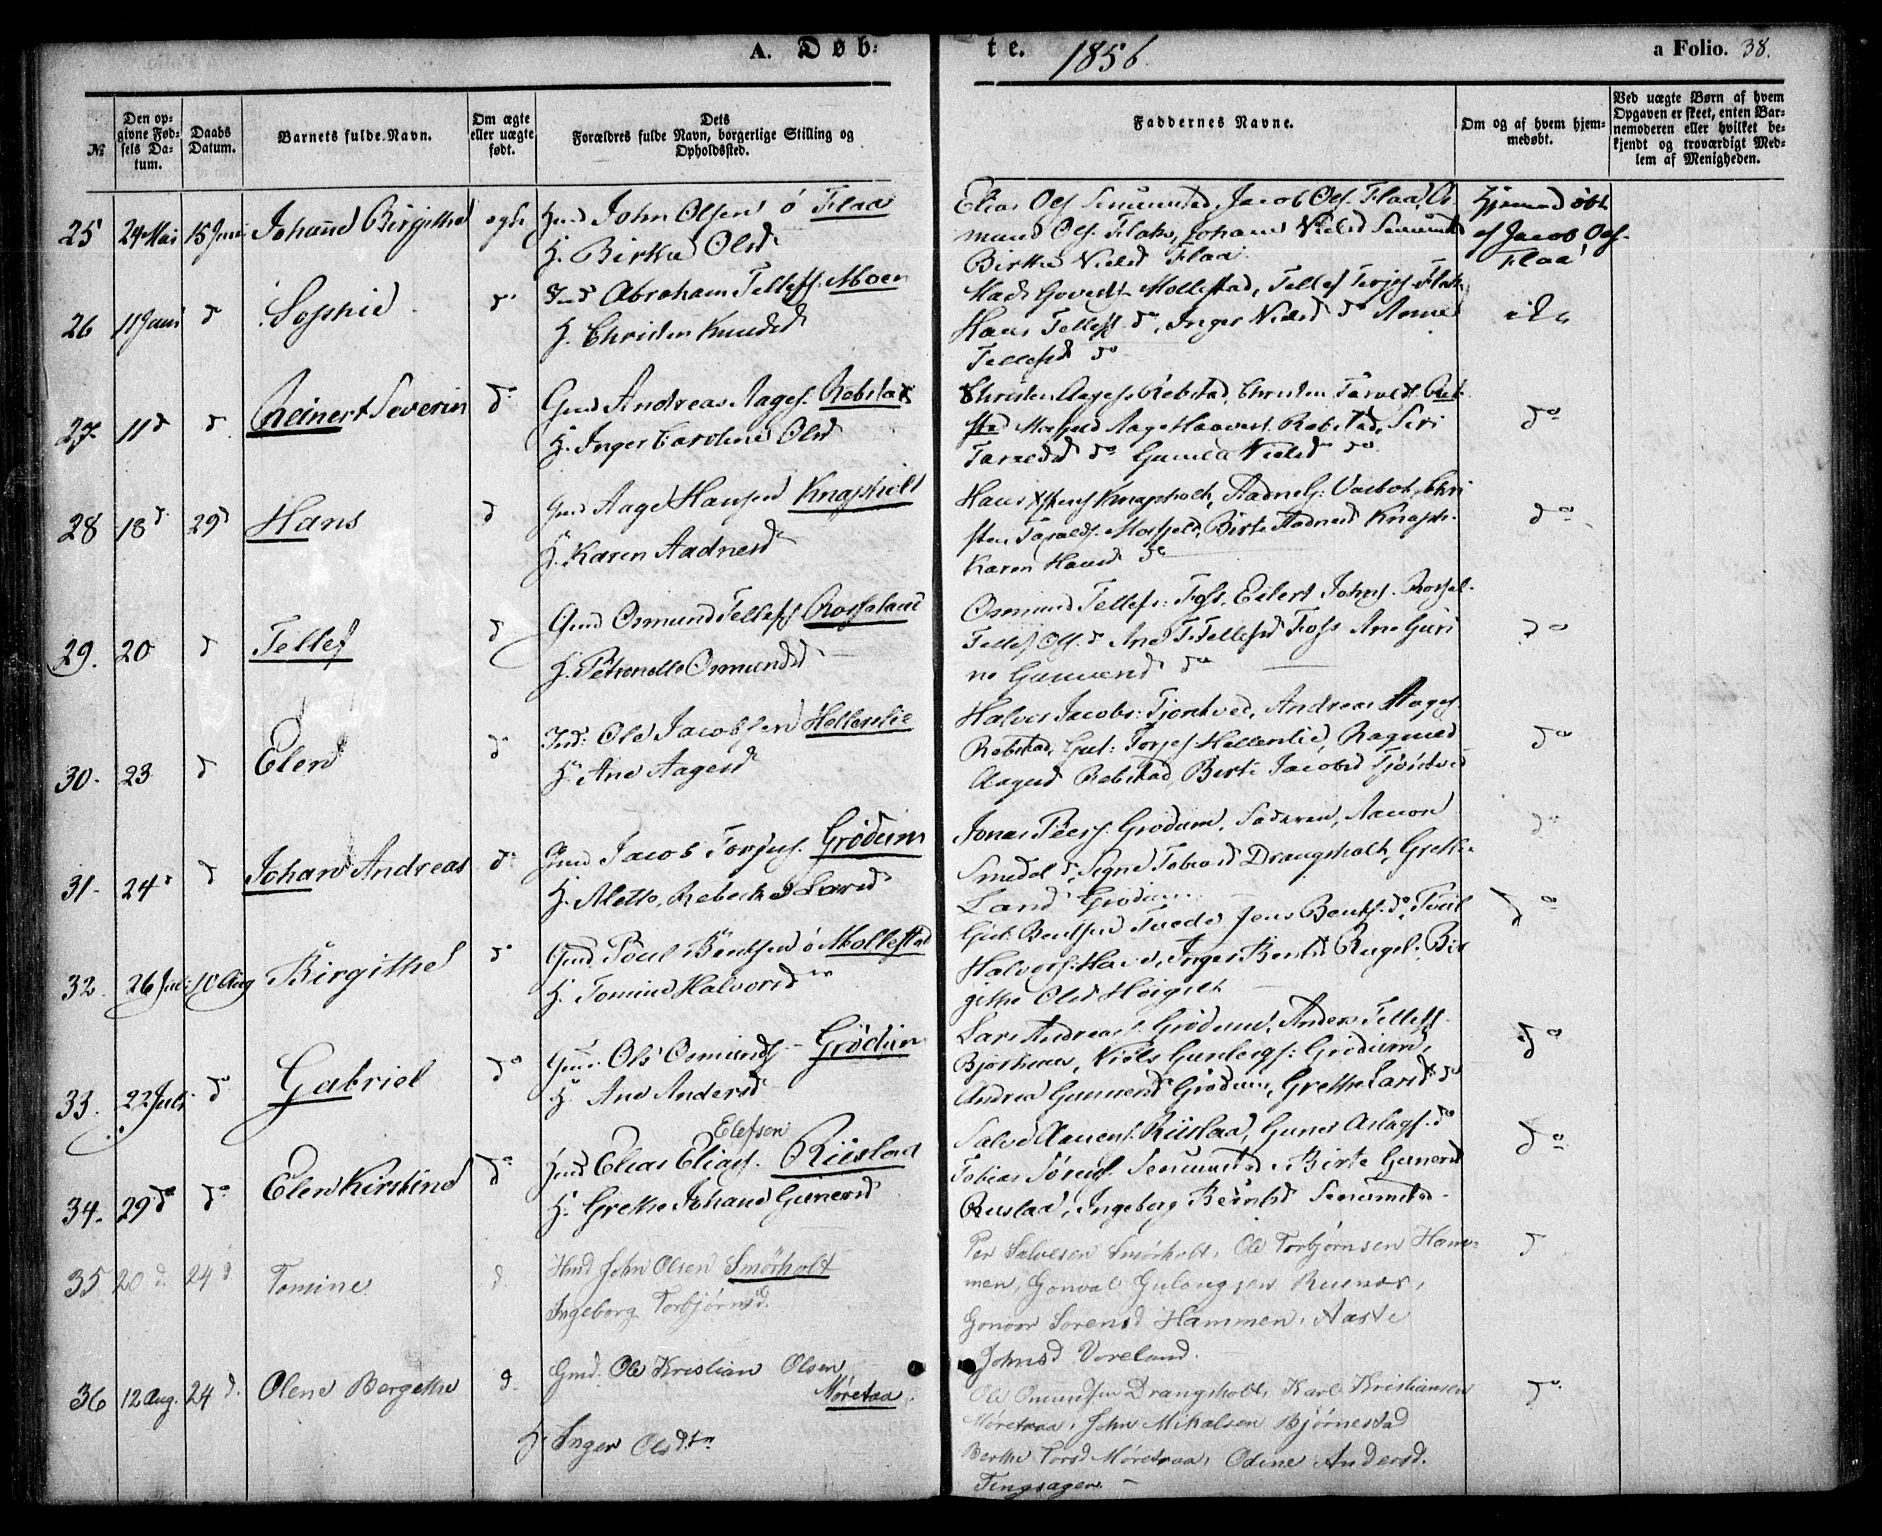 A. Døb-
te.
1856
a Folio. 38.
№
Den opgivne Fødsels Datum.
Daabs Datum.
Barnets fulde Navn.
Om ægte eller uægte født.
Dets Forældres fulde Navn, borgerlige Stilling og Opholdssted.
Faddernes Navne.
Om og af hvem hjemmedøbt.
Ved uægte Børn af hvem Opgaven er skeet, enten Barnemoderen eller hvilket bekjendt og troværdigt Medlem af Menigheden.
25 24 Mai 15 Juni Johanne Birgithe ægte John Olsen ö Flaa
H. Birthe Olsd
Elias Ols Senumstad, Jacob Ols. Flaa, Os
mund Ols. Flaa, Johanne Nielsd Senumst
Birthe Nielsd Flaa
Hjemmedøbt
af Jacob Ols.
Flaa
26 11 Juni d Sophie do Abraham Tellefs. Moen
H. Christen Knudsd
Mads Govertss Mollestad, Tellef Terjes. Flak
Hans Tellefs. do, Inger Nielsd do Anne
Tellefsd do
ikke
27 11 d d. Reinert Severin do Gmd Andreas Aages. Rebstad
H. Inger Caroline Olsd
Christen Aages. Rebstad, Christen Taralds. Reb-
stad Aage Haavors. Rebstad, Siri
Taraldsd do Gunild Nielsd do
do
28 18 d. 29 d Hans d Gmd Aage Hansen Knapholt
H. Karen Aadnesd
Knapholt, Aadne G. Vatbot, Chri
sten Taralds. Mosfjeld, Birte Aadnesd Knaph.
Karen Hansd do
do
29. 20 d Tellef d Gmd Osmund Tellefs Rosseland
H. Petronelle Osmundsd
Osmund Tellefs: Foss, Eilert Johns. Rossel.
Tellef Ols. d Ane T. Tellefsd Foss Ane Guri
ne Gunuldsd do
do
30. 23 d Elen d Ind: Ole Jacobsen Hellerslie
H. Ane Aagesd
Halvor Jacobs: Tjomtved, Andreas Aages.
Rebstad, Gut: Torjes Hellerslie, Ragnild
Aagesd Rebstad, Birte Jacobsd Tjomtved
do
31. 24 d d Johan Andreas d. Gmd Jacob Torjus. Grødum
H. Mette Rebecka Larsd
Jonas Peers. Grødum, Faderen, Aanon
Smedal d, Signe Tobiasd Drangsholt, Grethe
Larsd Grødum
do
32. 26 Juli 10 Aug Birgithe d Gmd. Poul Bentsen ö Mollestad
H. Tomine Halvorsd
Gut. Bentsen Tvede Jens Bents. do, Poul
Halvors. Inger Bentsd Rugsl. Bir
githe Olsd Höigilt
do
33. 22 Juli do Gabriel do Gmd. Ole Osmunds. Grødum
H. Ane Andersd
Lars Andreas. Grødum, Anders Tellefs.
Niels Gunbergs: Grødum,
Andrea Gunnersd Grødum, Grethe Larsd do
do
34. 29 d do Elen Kirstine do Elefsen
Gmd Elias Elias. Riislaa
H. Grethe Johanne Gunersd
Salve Aanens. Riislaa, Guner Aslags. do
Tobias Sørens. Senumstad, Birte Gunersd
Riislaa, Ingeborg Berntsd Senumstad.
do
35 20 d. 24 d Tomine d Hmd John Olsen Smörholt
Ingeborg Torbjörnsd.
Per Salvesen Smörholt, Ole Torbjörnsen Ham-
men, Gonval Gulougsen
Gonvor Sorensd Hammen, Aaste
Johnsd Voreland.
d
36 12 Aug. 24 d. Olene Bergethe d. Gmd. Ole Kristian Olsen
Møretraa
H. Inger Olsdtr
Ole Omundsen Drangsholt, Karl Kristiansen
Møretraa, John Mikalsen Bjørnestad
Berthe Torsd Møretraa, Odine Andersd.
Tingsagen
do